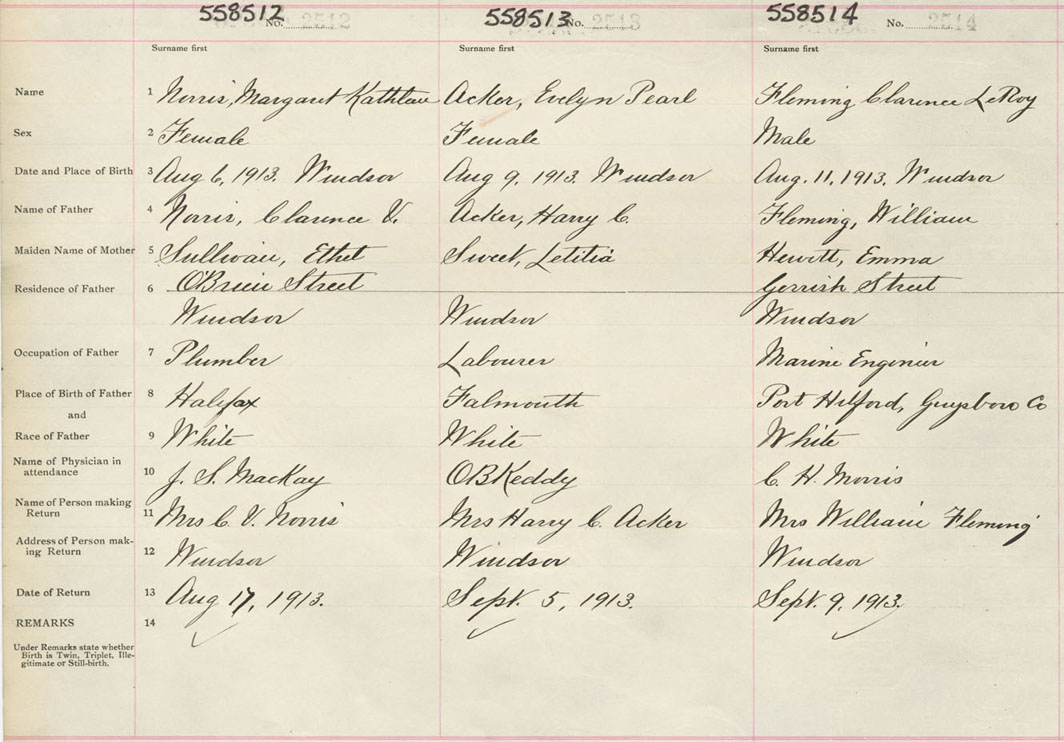 558512 No. 2512 558513 No. 2513 558514 No. 2514
Surname first Surname first Surname first
Name 1 Norris, Margaret Kathleen Acker, Evelyn Pearl Fleming Clarence LeRoy
Sex 2 Female Female Male
Date and Place of Birth 3 Aug 6, 1913. Windsor Aug 9, 1913. Windsor Aug. 11, 1913. Windsor
Name of Father 4 Norris, Clarence V. Acker, Harry C. Fleming, William
Maiden Name of Mother 5 Sullivan, Ethel Sweet, Letitia Hewitt, Emma
Residence of Father 6 O'Brien Street Gerrish Street
Windsor Windsor Windsor
Occupation of Father 7 Plumber Labourer Marine Engineer
Place of Birth of Father 8 Halifax Falmouth Port Hilford, Guysboro Co
and
Race of Father 9 White White White
Name of Physician in
attendance 10 J. S. MacKay O B Keddy C. H. Morris
Name of Person making
Return 11 Mrs C. V. Norris Mrs Harry C. Acker Mrs William Fleming
Address of Person mak-
ing Return 12 Windsor Windsor Windsor
Date of Return 13 Aug 17, 1913. Sept. 5, 1913. Sept. 9, 1913.
REMARKS 14
Under Remarks state whether
Birth is Twin, Triplet, Ille-
gitimate or Still-birth.